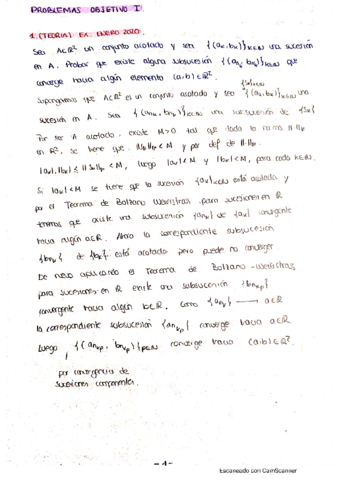 PROBLEMAS OBJETIVO I
1. (TEORÍA) EX. ENERO 2020.
Sea A⊂ℝ² un conjunto acotado y sea {(ak, bk)}k∈ℕ una sucesión
en A. Probar que existe alguna subsucesión {(ank, bnk)}k∈ℕ que
converge hacia algún elemento (a,b)∈ℝ².
Supongamos que A⊂ℝ² es un conjunto acotado y sea {(ak, bk)}k∈ℕ una
sucesión en A. Sea una subsucesión de
Por ser A acotado, existe M>0 tal que dada la norma
en ℝ², se tiene que y por def de
luego |ak|<M y |bk|<M, para cada k∈ℕ.
Si |ak|<M se tiene que la sucesión {ak}k∈ℕ está acotada y
por el Teorema de Bolzano Weierstrass para sucesiones en ℝ
tenemos que existe una subsucesión de {ak} convergente
hacia algún a∈ℝ. Ahora la correspondiente subsucesión
de {bk} está acotada pero puede no converger
De nuevo aplicando el Teorema de Bolzano-Weierstrass
para sucesiones en ℝ existe una subsucesión
convergente hacia algún b∈ℝ. Como → a∈ℝ
la correspondiente subsucesión converge hacia a∈ℝ
Luego, converge hacia (a,b)∈ℝ².
por convergencia de
sucesiones componentes.
-1-
Escaneado con CamScanner